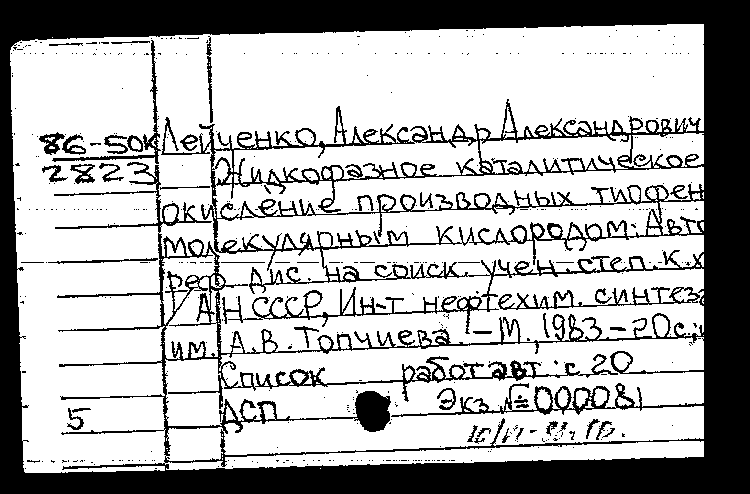 86-50к Лейченко, Александр Александрович
2823 Жидкофазное каталитическое
окисление производных тиофен
молекулярным кислородом: Авто
реф. дис. на соиск. учен. степ. к.х
/ АН СССР, Ин-т нефтехим. синтеза
им. А.В. Топчиева. - М., 1983. - 20с.;
Список работ авт.: с. 20
5. ДСП Экз. №000081